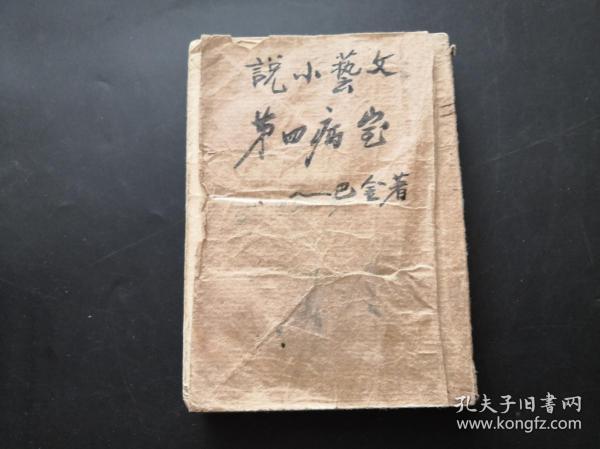 說小藝文
第四病室
～巴金著
孔夫子旧书网
www.kongfz.com